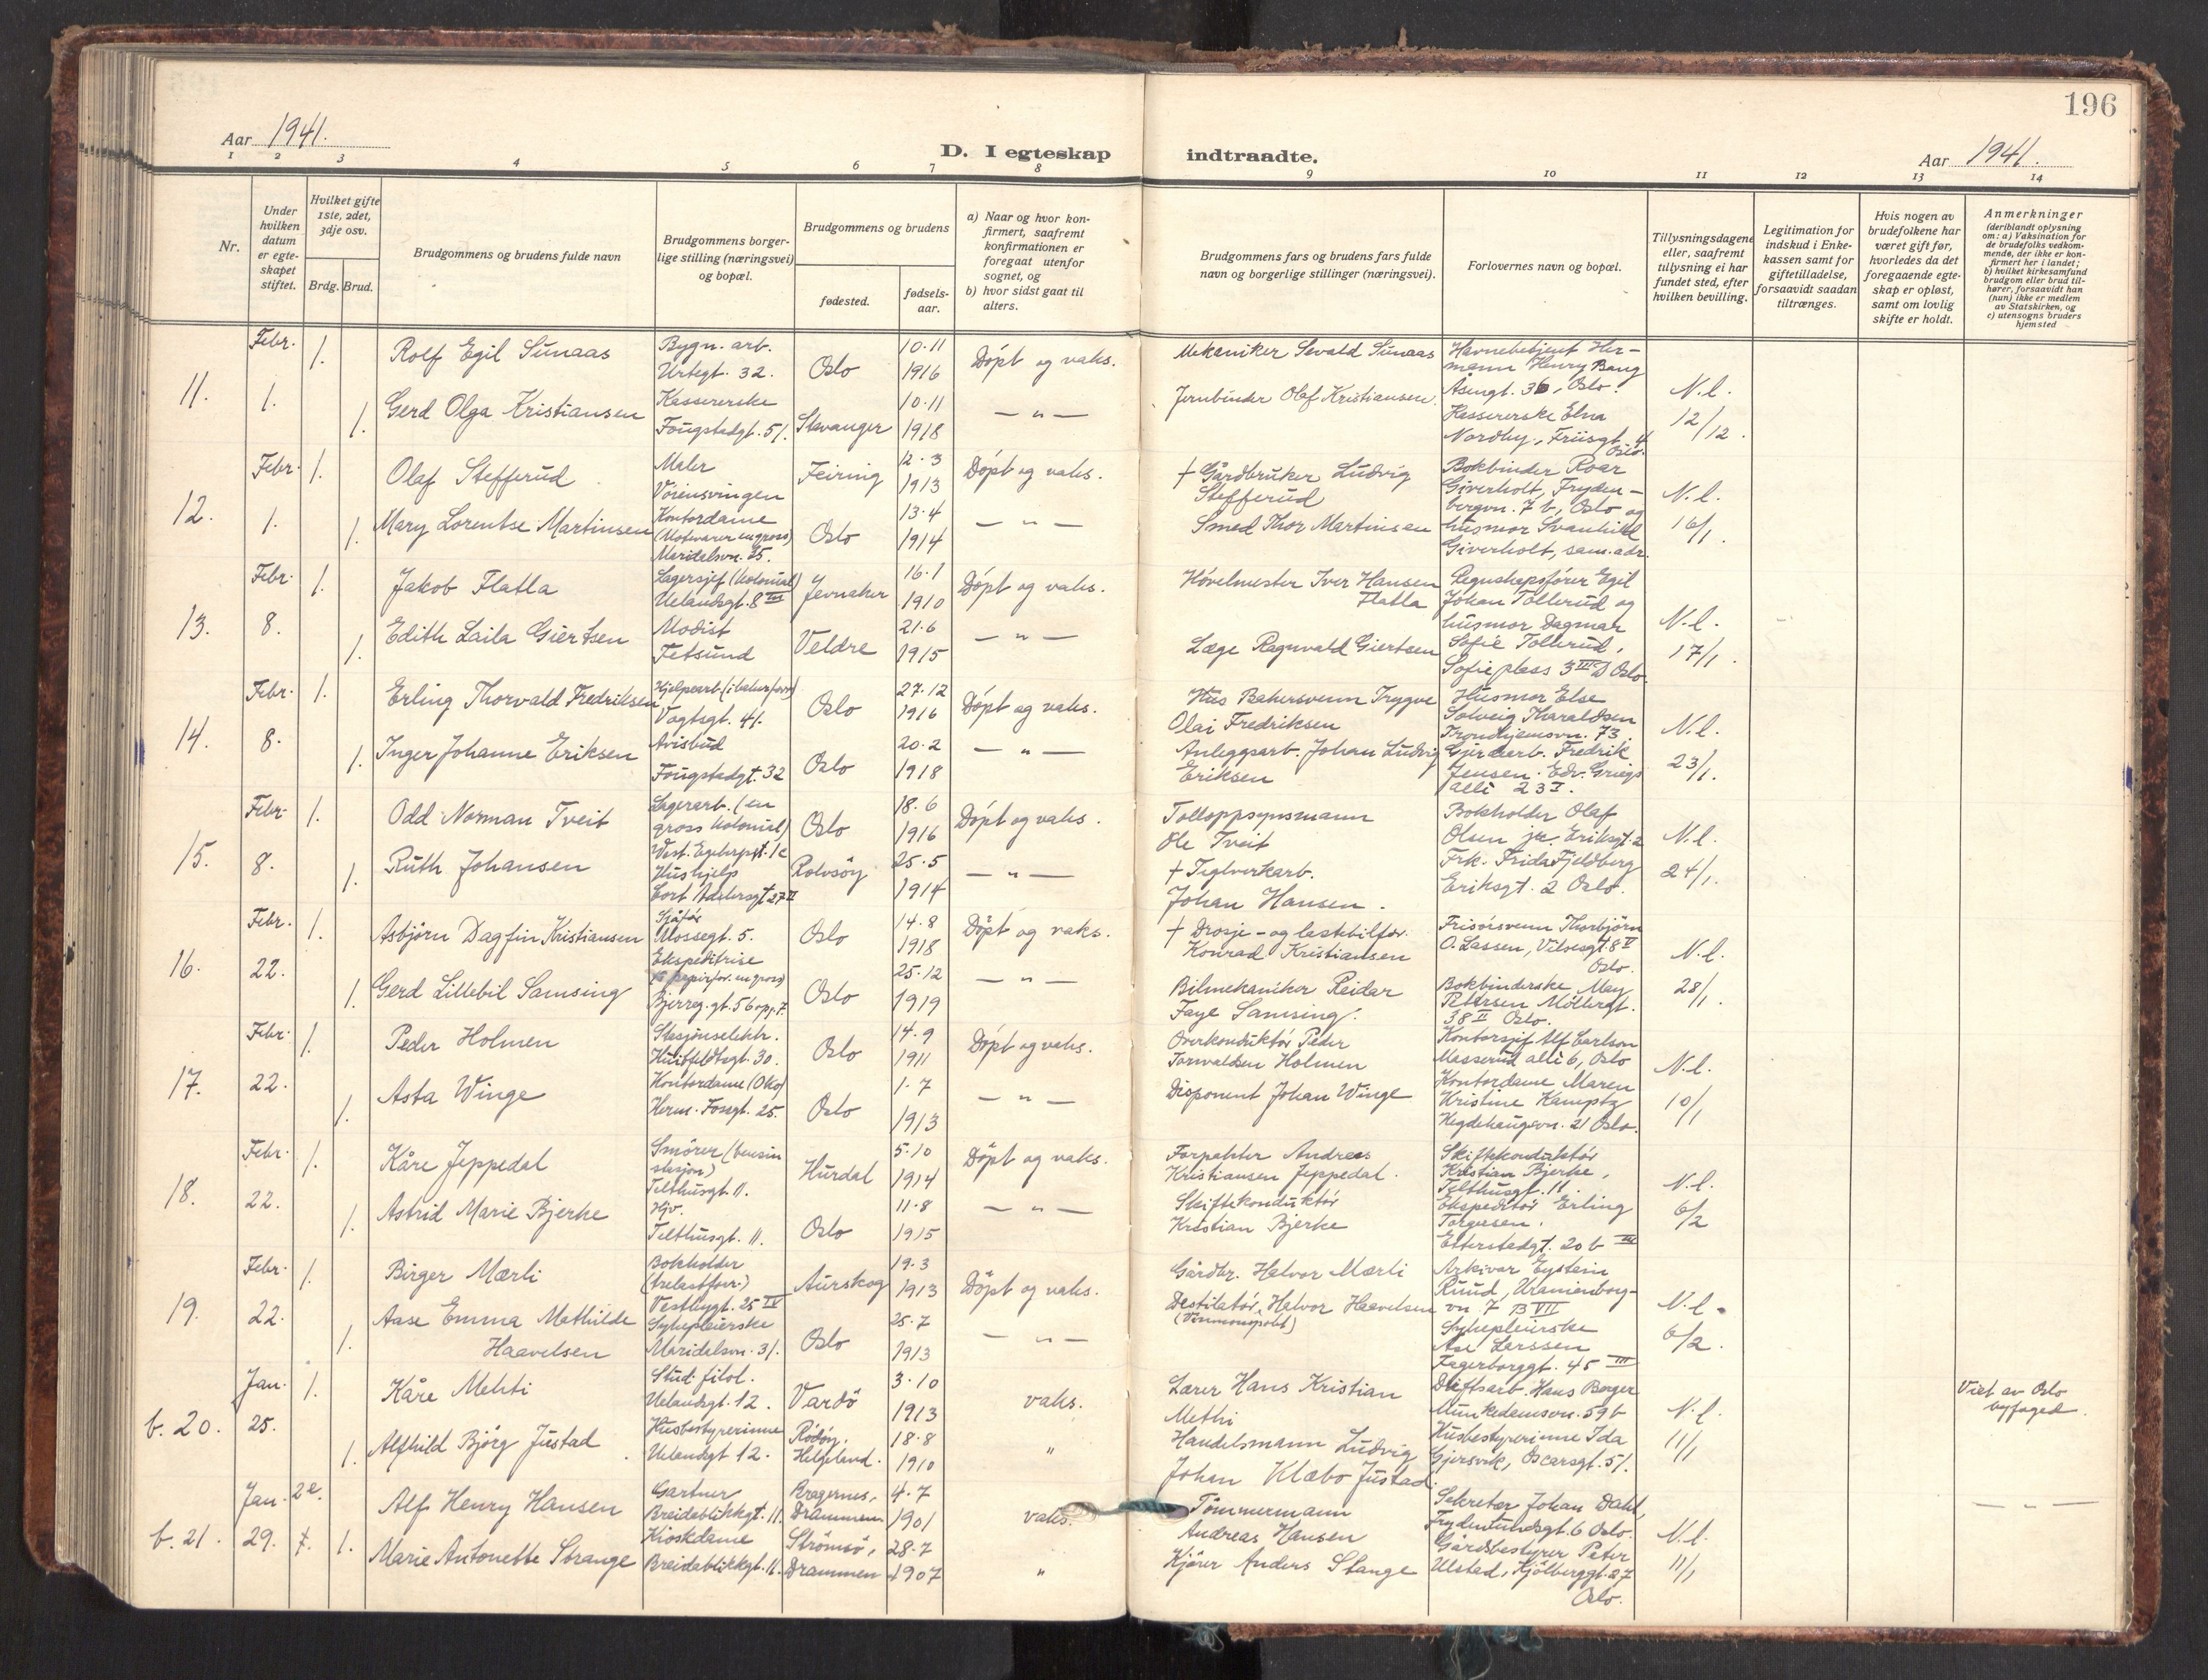 196
Aar 1941.
D. I egteskap indtraadte.
Aar 1941.
1 2 3 4 5 6 7 8 9 10 11 12 13 14
Nr.
Under hvilken datum er egteskapet stiftet.
Hvilket gifte 1ste, 2det, 3dje osv.
Brdg. Brud.
Brudgommens og brudens fulde navn
Brudgommens borgerlige stilling (næringsvei) og bopæl.
Brudgommens og brudens
fødested.
fødselsaar.
a) Naar og hvor konfirmert, saafremt konfirmationen er foregaat utenfor sognet, og
b) hvor sidst gaat til alters.
Brudgommens fars og brudens fars fulde navn og borgerlige stillinger (næringsvei).
Forlovernes navn og bopæl.
Tillysningsdagene eller, saafremt tillysning ei har fundet sted, efter hvilken bevilling.
Legitimation for indskud i Enkekassen samt for giftetilladelse, forsaavidt saadan tiltrænges.
Hvis nogen av brudefolkene har været gift før, hvorledes da det foregaaende egteskap er opløst, samt om lovlig skifte er holdt.
Anmerkninger (deriblandt oplysning om: a) Vaksination for de brudefolks vedkommende, der ikke er konfirmert her i landet; b) hvilket kirkesamfund brudgom eller brud tilhører, forsaavidt han (hun) ikke er medlem av Statskirken, og c) utensogns bruders hjemsted
11. Febr. 1. 1. Rolf Egil Sunaas
Bygn. arb. Urtegt. 32. Oslo 10-11 1916 Döpt og vaks.
Mekaniker Sevald Sunaas
1. Gerd Olga Kristiansen
Kassererske Fougstadgt. 51. Stavanger 10-11 1918 — " —
Jernbinder Olaf Kristiansen.
Havnebetjent Hermann Henry Bang Åsengt. 36, Oslo.
Kassererske Elna Nordby, Friisgt. 4 Oslo.
N.l. 12/12.
12. Febr. 1. 1. Olaf Stefferud
Maler Voiensvingen Feiring 12-3 1913 Döpt og vaks.
+ Gårdbruker Ludvig Stefferud
1. Mary Lorentse Martinsen
Kontordame (Motevarer engros) Maridalsvn. 25. Oslo 13-4 1914 — " —
Smed Thor Martinsen
Bokbinder Roar Giverholt, Frydenbergvn. 7 b, Oslo og husmor Svanhild Giverholt, sam. adr.
N.l. 16/1.
13. Febr. 8. 1. Jakob Flatla
Lagersjef (kolonial) Uelandsgt. 8 III Jevnaker 16-1 1910 Döpt og vaks.
Hövelmester Iver Hansen Flatla
1. Edith Laila Giertsen
Modist Fetsund Veldre 21-6 1915 — " —
Læge Ragnvald Giertsen
Regnskapsförer Egil Johan Tollerud og husmor Dagmar Sofie Tollerud, Sofie plass 3 III D Oslo.
N.l. 17/1.
14. Febr. 8. 1. Erling Thorvald Fredriksen
Vogtsgt. 41. Oslo 27-12 1916 Döpt og vaks.
Bakersvenn Trygve Olai Fredriksen
1. Inger Johanne Eriksen
Avisbud Fougstadgt. 32 Oslo 20-2 1918 — " —
Anleggsarb. Johan Ludvig Eriksen
Husmor Else Solveig Tharaldsen Trondhjemsvn. 73
Fredrik Jensen. Edv. Griegs alle 23 I.
N.l. 23/1.
15. Febr. 8. 1. Odd Norman Tveit
Lagerarb. (en gross kolonial) Oslo 18-6 1916 Döpt og vaks.
Tolloppsynsmann Ole Tveit
1. Ruth Johansen
Hushjelp Cort Adelersgt 27 II Rolvsöy 25-5 1914 — " —
+ Teglverkarb. Johan Hansen.
Bokholder Olaf Olsen jr. Eriksgt. 2
Frk. Frida Fjeldberg Eriksgt. 2 Oslo.
N.l. 24/1.
16. Febr. 22. 1. Asbjörn Dagfin Kristiansen
Sjåför Mossegt. 5. Oslo 14-8 1918 Döpt og vaks.
+ Drosje- og lastebilför. Konrad Kristiansen
1. Gerd Lillebil Samsing
Ekspeditrise (papirfor. engross) Bjerreg. gt. 56 opg. 7. Oslo 25-12 1919 — " —
Bilmekaniker Reidar Faye Samsing.
Frisörsvenn Thorbjörn O. Lassen, Vibesgt. 8 V Oslo.
Bokbinderske May Pettersen Möllergt. 38 II Oslo.
N.l. 28/1.
17. Febr. 22. 1. Peder Holmen
Stasjonselektr. Huitfeldtsgt. 30. Oslo 14-9 1911 Döpt og vaks.
Overkonduktör Peder Torvaldsen Holmen
1. Asta Winge
Kontordame (Oko) Herm. Fossgt. 25. Oslo 1-7 1913 — " —
Disponent Johan Winge
Kontorsjef Alf Carlson Masserud alle 6, Oslo
Kontordame Maren Kristine Kamptz Hegdehaugsvn. 21 Oslo.
N.l. 10/1
18. Febr. 22. 1. Kåre Jeppedal
Smörer (bensin stasjon) Telthusgt. 11. Hurdal 5-10 1914 Döpt og vaks.
Forpakter Andreas Kristiansen Jeppedal.
1. Astrid Marie Bjerke
Hjv. Telthusgt. 11. Oslo 11-8 1915 — " —
Skiftekonduktör Kristian Bjerke
Skiftekonduktör Kristian Bjerke, Telthusgt. 11.
Ekspeditör Erling Torgersen. Etterstadgt. 20 b III
N.l. 6/2
19. Febr. 22. 1. Birger Mærli
Bokholder (trelastforr.) Vestbygt. 25 IV Aurskog 19-3 1913 Döpt og vaks.
Gårdbr. Halvor Mærli
1. Aase Emma Mathilde Haavelsen
Sykepleierske Maridalsvn. 31. Oslo 25-7 1913 — " —
Destilatör Halvor Haavelsen (Vinmonopolet)
Arkivar Eystein Ruud, Uranienborgvn. 7 B VII
Sykepleierske Åse Larssen Fagerborggt. 45 III
N.l. 6/2.
b. 20. Jan. 25. 1. Kåre Mehti
Stud. filol. Uelandsgt. 12. Vardö 3-10 1913 vaks.
Lærer Hans Kristian Methi
1. Alfhild Björg Justad
Husbestyrerinne Uelandsgt 12. Rödöy, Helgeland. 18-8 1910 "
Handelsmann Ludvig Johan Klæbo Justad.
Driftsarb. Hans Borger Munkedamsvn. 59 b
Husbestyrerinne Ida Gjersvik, Oscarsgt. 51.
N.l. 11/1
Viet av Oslo byfoged.
b. 21. Jan. 29. 2e. Alf Henry Hansen
Gartner Breidablikkgt. 11. Bragernes, Drammen 4-7 1901 vaks.
Tömmermann Andreas Hansen
1. Marie Antonette Strange
Kioskdame Breidablikkgt. 11. Strömsö, Drammen 28-7 1907 "
Kjörer Anders Stange
Sekretær Johan Dahl, Frydenlundsgt. 6 Oslo.
Gårdsbestyrer Peter Ulstad, Kjölberggt. 27 Oslo.
N.l. 11/1
— " —